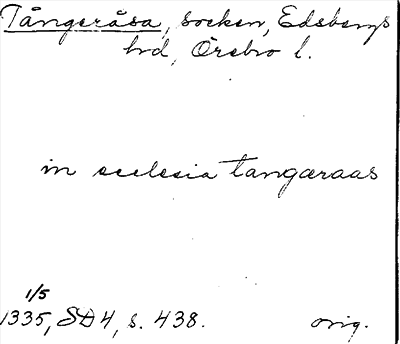 Tångeråsa, socken, Edsbergs
hrd, Örebro l.
in ecclesia tangæraas
1/5
1335, SD 4, s. 438. orig.